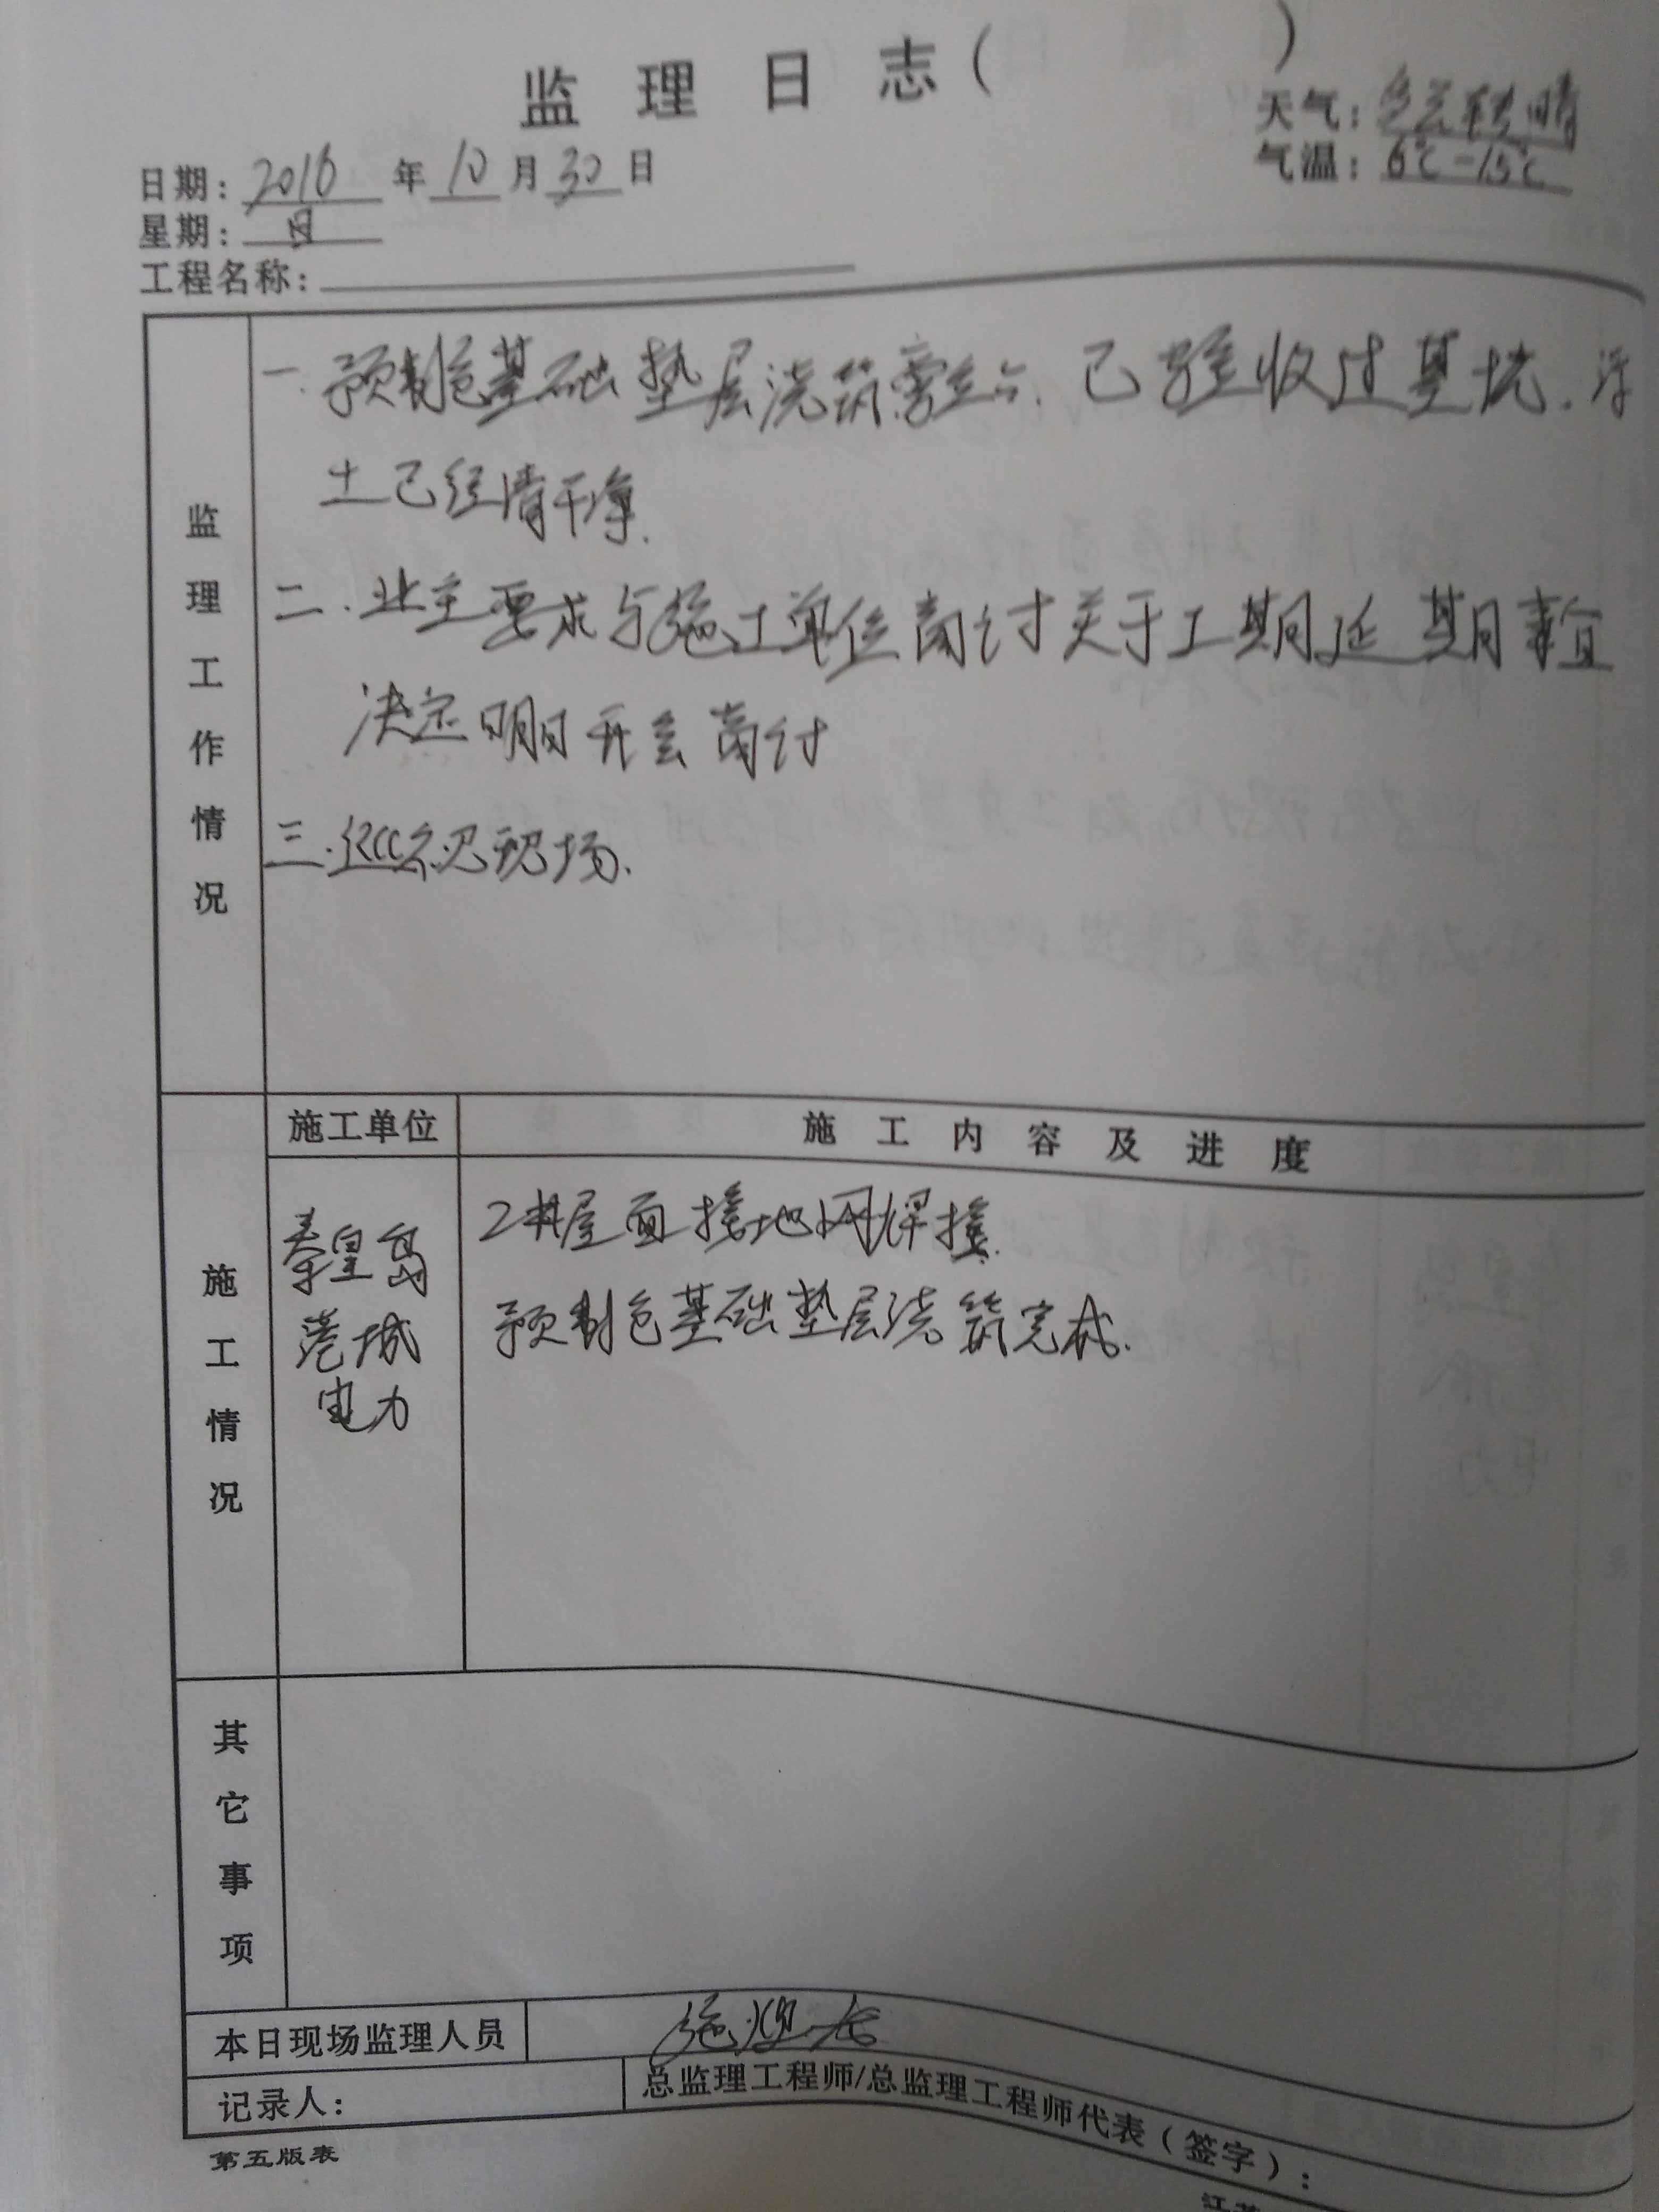 监理日志( )
天气：多云转晴
日期：2016年10月30日
气温：6℃-15℃
星期：日
工程名称：
监理工作情况
一.预制仓基础垫层浇筑旁站.已验收过基坑.浮
土已经清干净.
二.业主要求与施工单位商讨关于工期延期事宜
决定明日开会商讨
三.巡视现场.
施工情况
施工单位
施工内容及进度
秦皇岛
港城
电力
2#屋面接地网焊接.
预制仓基础垫层浇筑完成.
其它事项
本日现场监理人员
记录人：
总监理工程师/总监理工程师代表（签字）：
第五版表